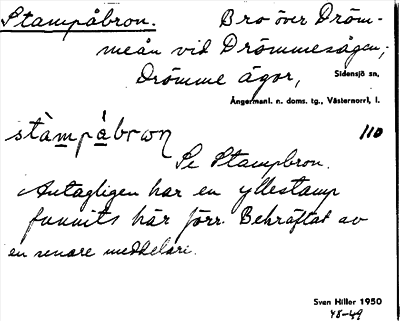 Stampåbron. Bro över Dröm-
meån vid Drömmesågen;
Drömme ägor, Sidensjö sn,
Ångermanl. n. doms. tg., Västernorrl, l.
stàmpåbrωn 110
Se Stampbron.
Antagligen har en yllestamp
funnits här förr. Bekräftat av
en senare meddelare.
Sven Hiller 1950
48-49